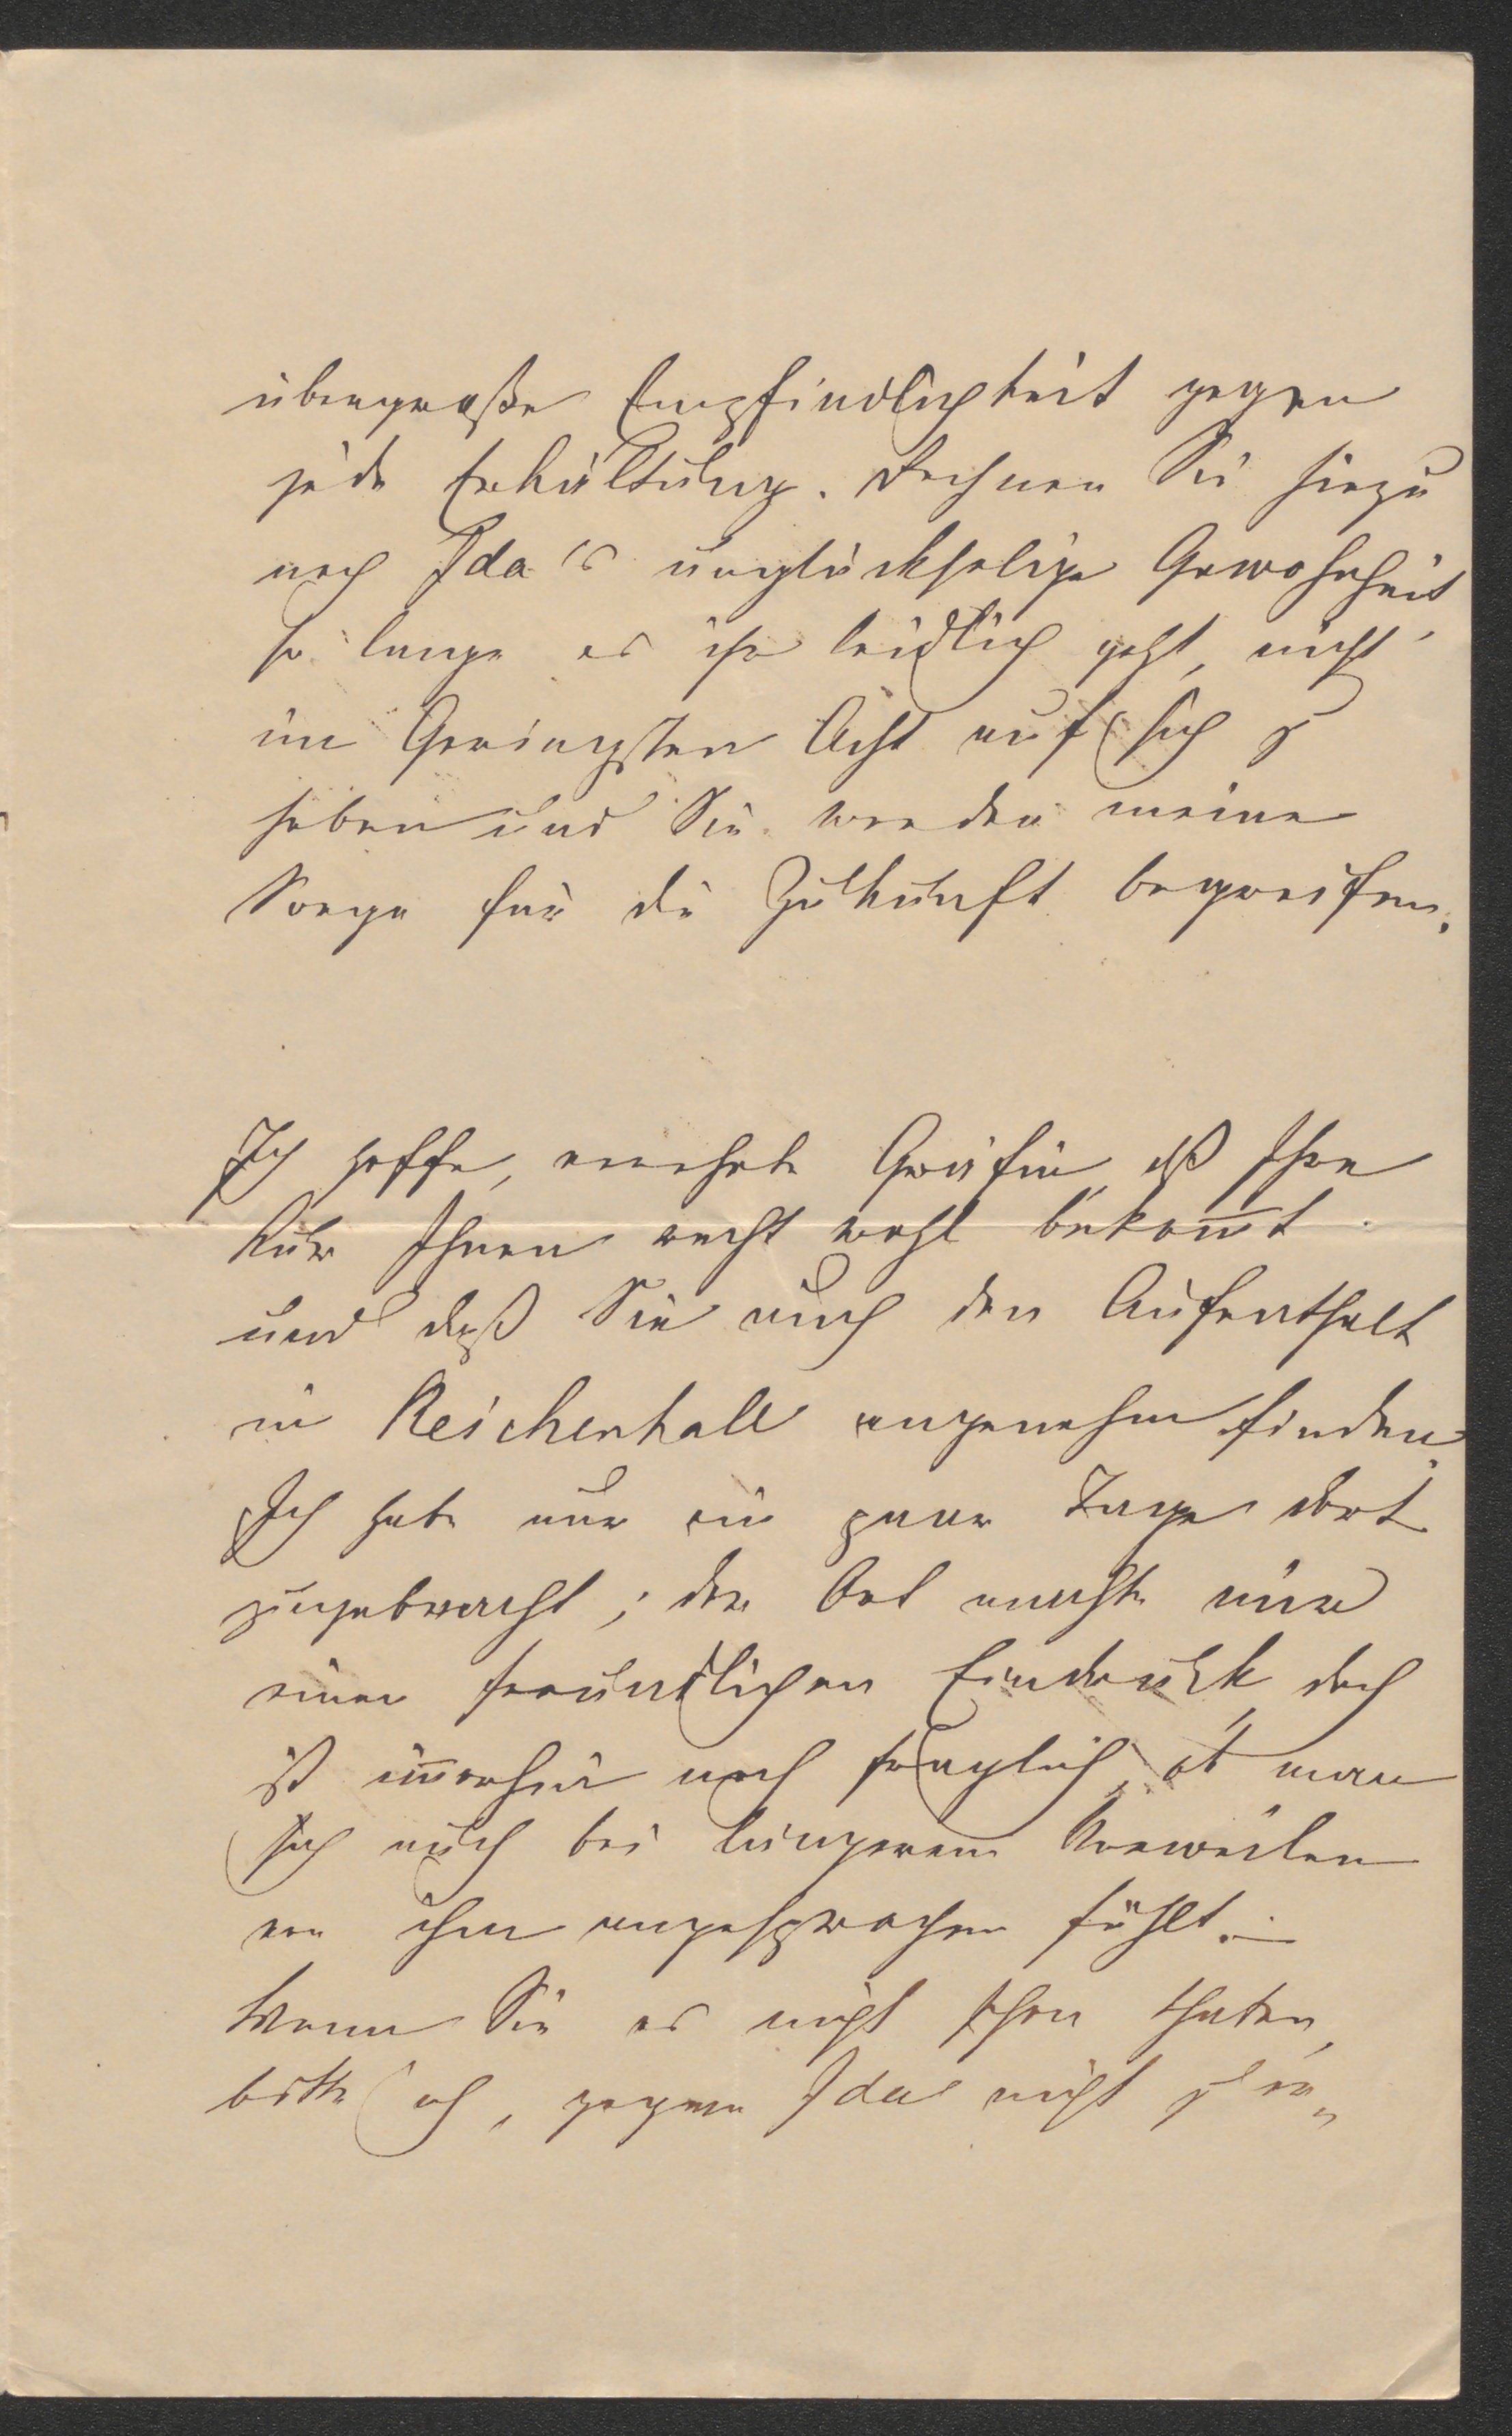 übergroße Empfindlichkeit gegen
jede Erkältung. Rechnen Sie hiezu
noch Ida's unglückselige Gewohnheit,
so lange es ihr leidlich geht, nicht
im Geringsten Acht auf sich zu
haben und Sie werden meine
Sorge für die Zukunft begreifen.
Ich hoffe, verehrte Gräfin, daß Ihre
Kur Ihnen recht wohl bekom̅t
und daß Sie auch den Aufenthalt
in Reichenhall angenehm finden.
Ich habe nur ein paar Tage dort
zugebracht; der Ort machte mir
einen freundlichen Eindruck, doch
ist im̅erhin noch fraglich, ob man
sich auch bei längerem Verweilen
von ihm angesprochen fühlt. –
Wenn Sie es nicht schon thaten,
bitte ich, gegen Ida nicht zu er„